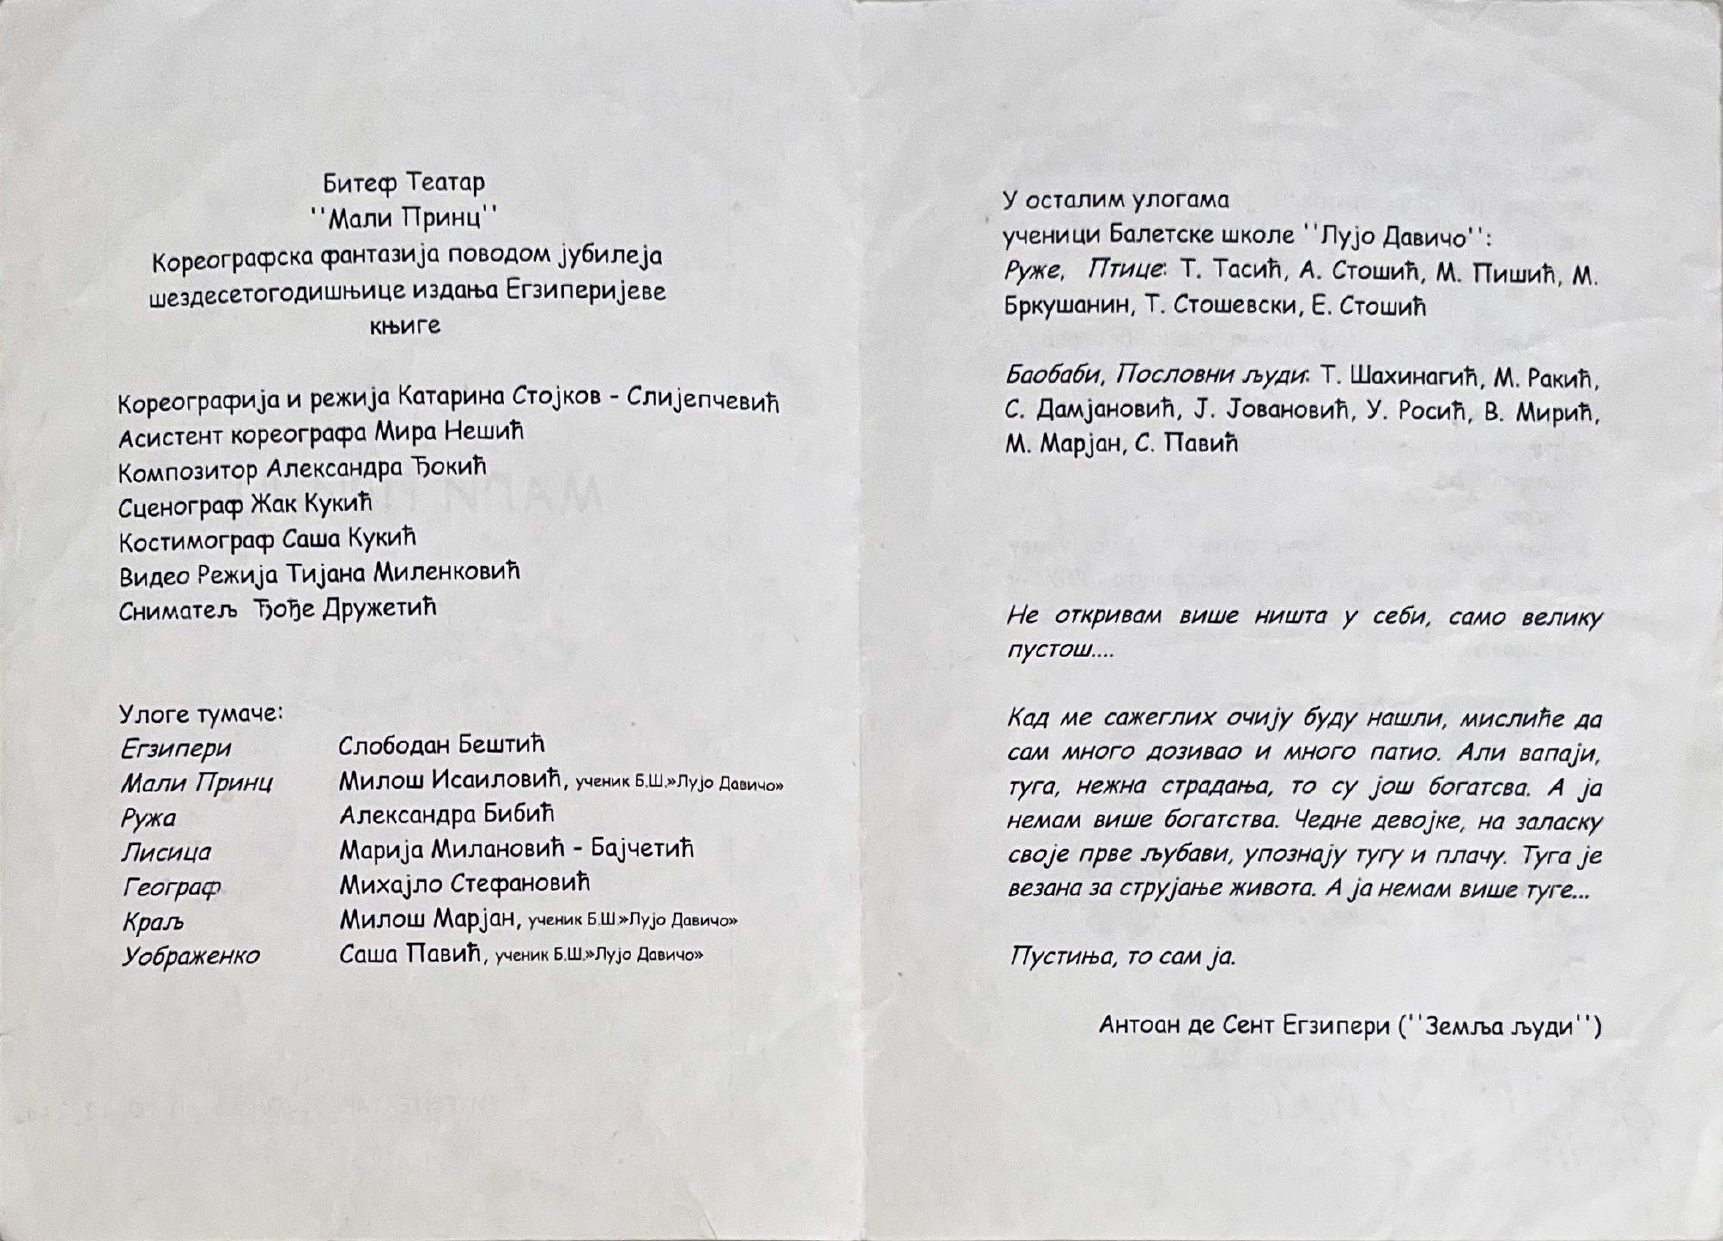 Битеф Театар
''Мали Принц''
Кореографска фантазија поводом јубилеја
шездесетогодишњице издања Егзиперијеве
књиге
Кореографија и режија Катарина Стојков - Слијепчевић
Асистент кореографа Мира Нешић
Композитор Александра Ђокић
Сценограф Жак Кукић
Костимограф Саша Кукић
Видео Режија Тијана Миленковић
Сниматељ Ђође Дружетић
Улоге тумаче:
Егзипери Слободан Бештић
Мали Принц Милош Исаиловић, ученик Б.Ш.»Лујо Давичо»
Ружа Александра Бибић
Лисица Марија Милановић - Бајчетић
Географ Михајло Стефановић
Краљ Милош Марјан, ученик Б.Ш.»Лујо Давичо»
Уображенко Саша Павић, ученик Б.Ш.»Лујо Давичо»
У осталим улогама
ученици Балетске школе ''Лујо Давичо'':
Руже, Птице: Т. Тасић, А. Стошић, М. Пишић, М.
Бркушанин, Т. Стошевски, Е. Стошић
Баобаби, Пословни људи: Т. Шахинагић, М. Ракић,
С. Дамјановић, Ј. Јовановић, У. Росић, В. Мирић,
М. Марјан, С. Павић
Не откривам више ништа у себи, само велику
пустош....
Кад ме сажеглих очију буду нашли, мислиће да
сам много дозивао и много патио. Али вапаји,
туга, нежна страдања, то су још богатсва. А ја
немам више богатства. Чедне девојке, на заласку
своје прве љубави, упознају тугу и плачу. Туга је
везана за струјање живота. А ја немам више туге...
Пустиња, то сам ја.
Антоан де Сент Егзипери (''Земља људи'')